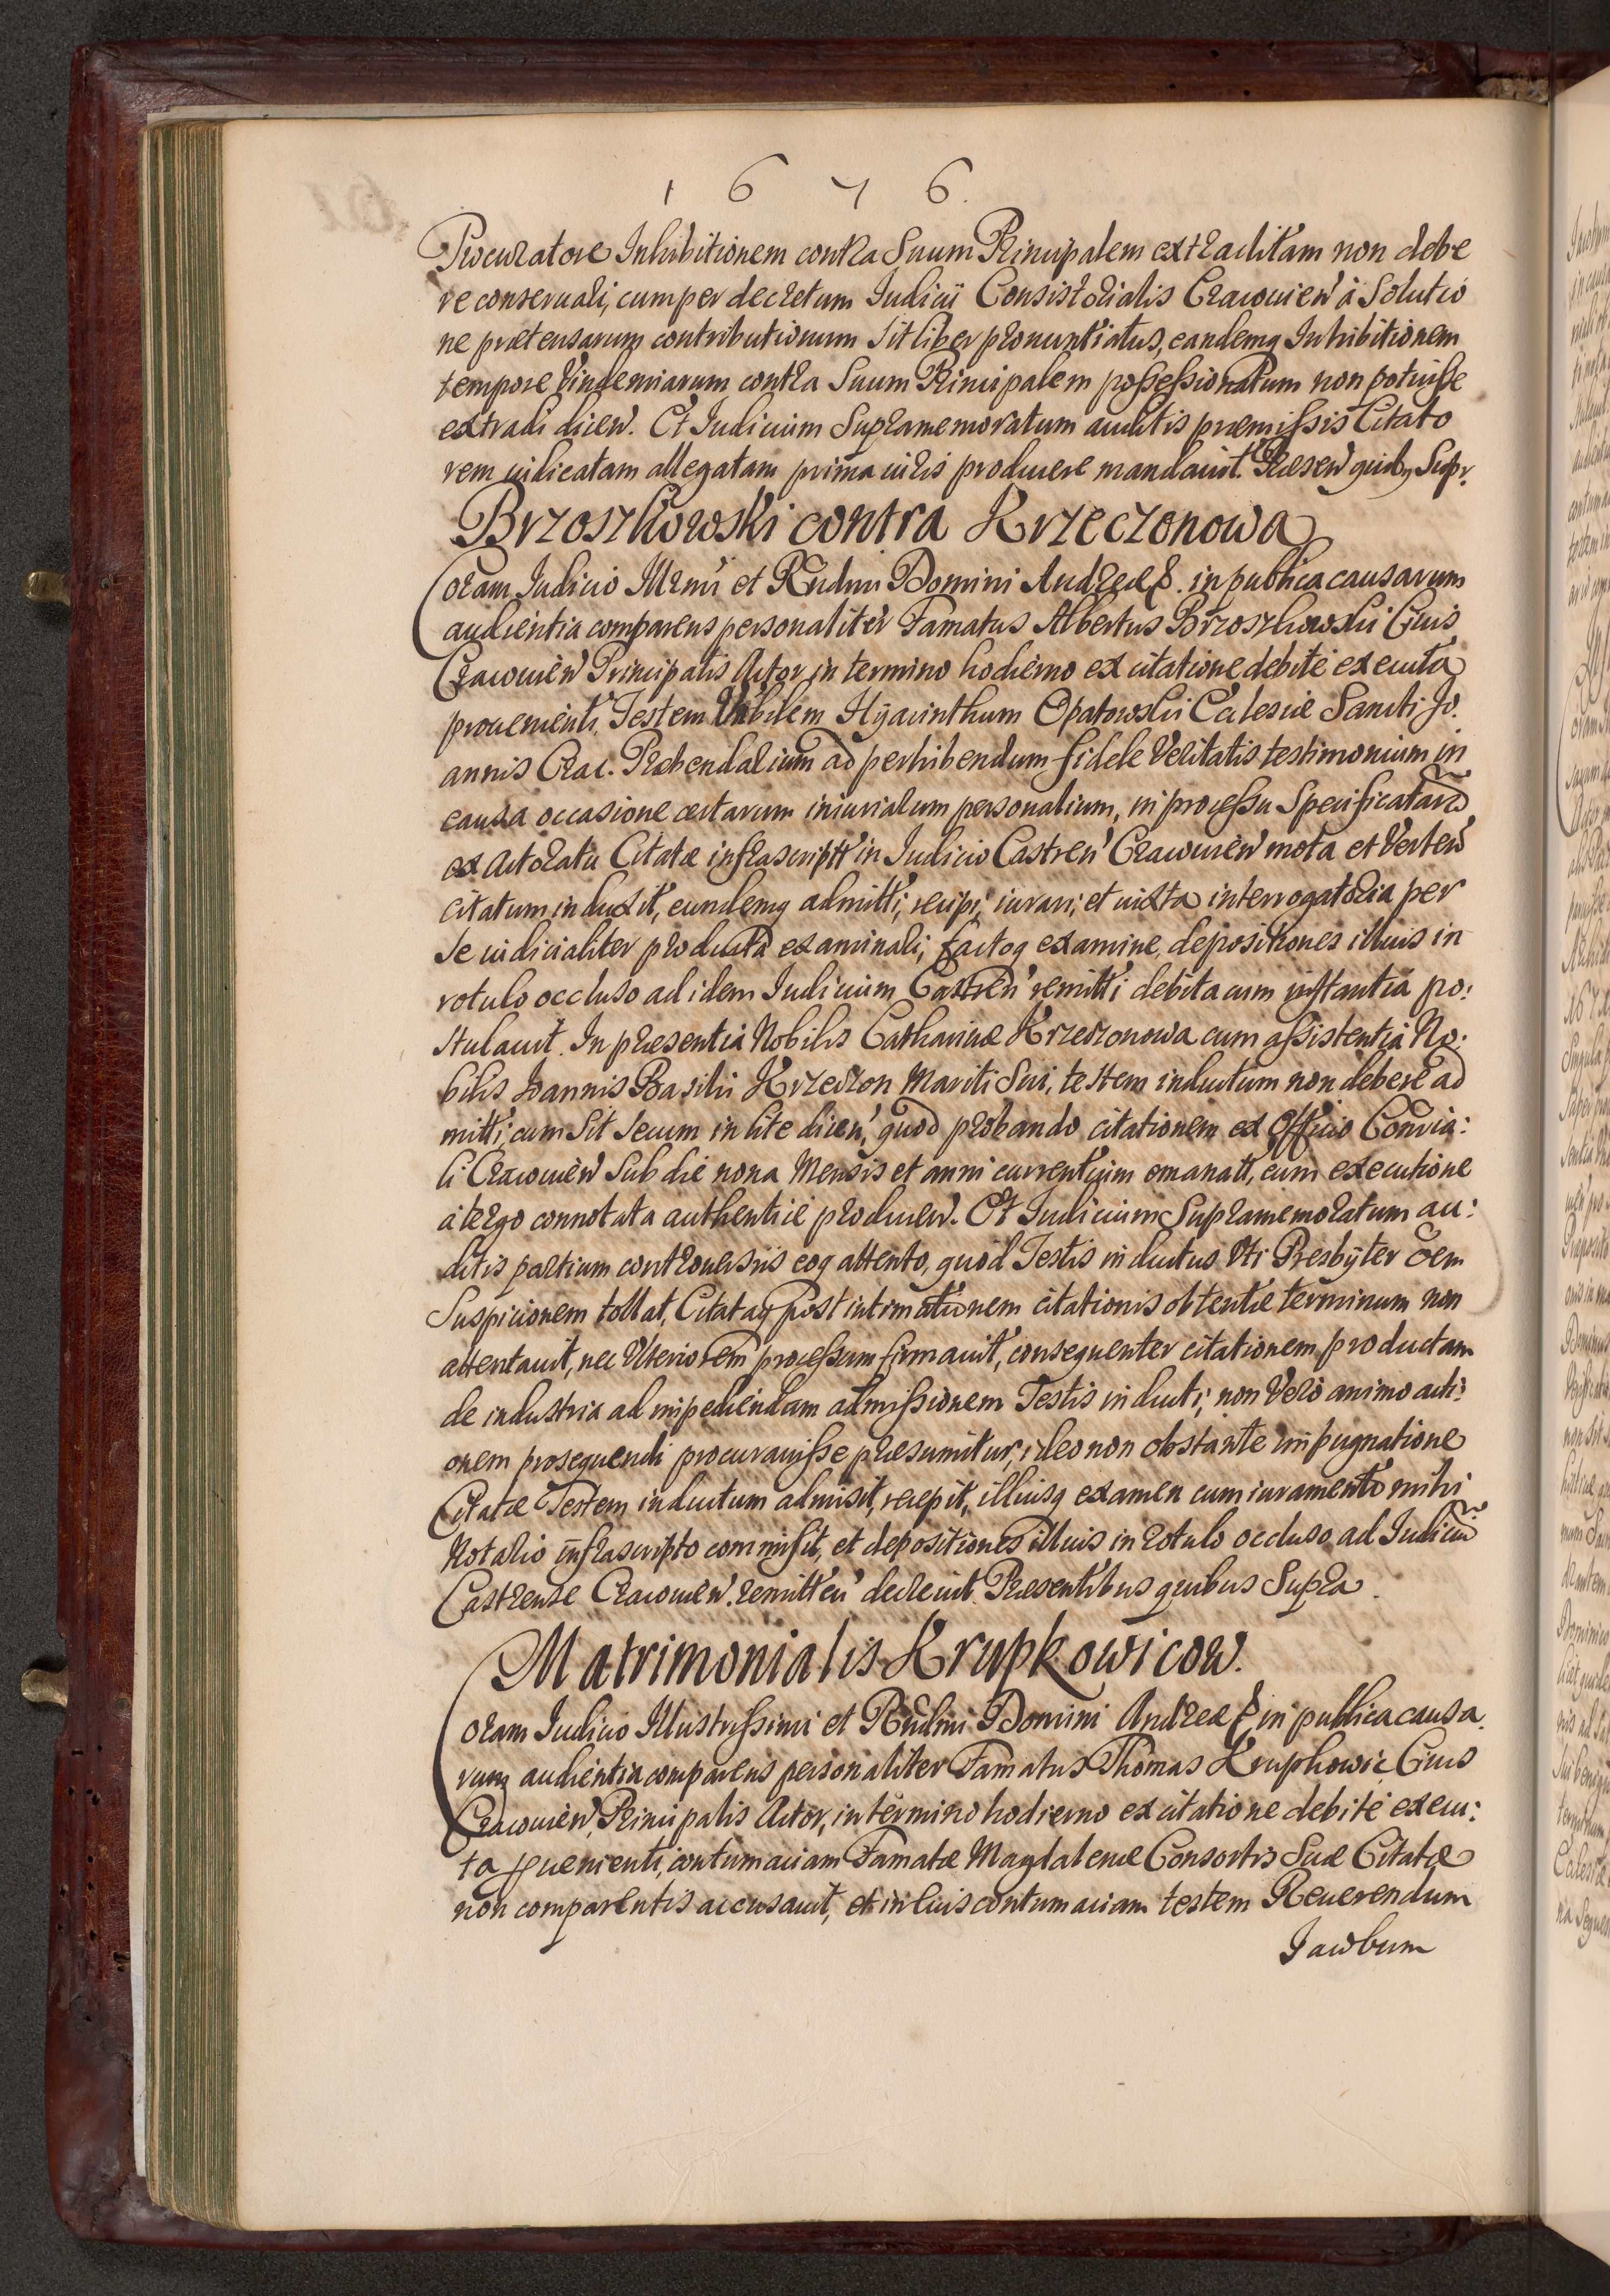 1 6 7 6.
Procuratore Inhibitionem contra Suum Principalem extraditam non debe
re conseruari, cum per decretum Iudicij Consistorialis Cracouien à Solutio
ne prætensarum contributionum Sit liber pronuntiatus, eandemq Inhibitionem
tempore Vindemiarum contra Suum Principalem possessionatum non potuisse
extradi dicen. Et Iudicium Supramemoratum auditis præmissis Citato
rem iudicatam allegatam prima iuris producere mandauit. Præsen quib9 Supr.
Brzoszkowski contra Krzeczonowa
Coram Iudicio Illrmi et Rndmi Domini Andreæ &. in publica causarum
audientia comparens personaliter Famatus Albertus Brzoszkowski Ciuis
Cracouien Principalis Actor in termino hodierno ex citatione debitè executa
prouenienti, Testem Vnblem Hyacinthum Opatowski Ecclesiæ Sancti Jo.
annis Crac. Præbendarium ad perhibendum fidele Veritatis testimonium in
causa occasione certarum iniuriarum personalium, in processu Specificatarũ
ex Actoratu Citatæ infrascriptt in Iudicio Castren Cracouien mota et Verten
citatum induxit, eundemq admitti, recipi, iurari, et iuxta interrogatoria per
Se iudicialiter producta examinari, factoq examine, depositiones illius in
rotulo occluso ad idem Iudicium Castren remitti debita cum instantia po:
stulauit. In præsentia Nobilis Catharinæ Krzeczonowa cum assistentia No:
bilis Joannis Basilii Krzeczon Mariti Sui, testem inductum non debere ad
mitti, cum Sit Secum in lite dicen, quod probando citationem ex Officio Consia:
li Cracouien Sub die nona Mensis et anni currentium emanatt, cum executione
à tergo connotata authenticè producen. Et Iudicium Supramemoratum au:
ditis partium controuersiis eoq attento, quòd Testis inductus Vti Presbyter oem
Suspicionem tollat, Citataq post intimationem citationis obtentæ terminum non
attentauit, nec Vlteriorem processum firmauit, consequenter citationem productam
de industria ad impediendam admissionem Testis inducti, non Verò animo acti:
onem prosequendi procurauisse præsumitur, ideo non obstante impugnatione
Citatæ Testem inductum admisit, recepit, illiusq examen cum iuramento mihi
Notario infrascripto commisit, et depositiones illius in rotulo occluso ad Iudiciũ
Castrense Cracouien. remitten decreuit. Præsentibus quibus Supra.
Matrimonialis Krupkowicow.
Coram Iudicio Illustrissimi et Rndmi Domini Andreæ & in publica causa
rum audientia comparens personaliter Famatus Thomas Krupkowic Ciuis
Cracouien, Principalis Actor, in termino hodierno ex citatione debitè execu:
ta prouenienti, contumaciam Famatæ Magdalenæ Consortis Suæ Citatæ
non comparentis accusauit, et in Eius contumaciam testem Reuerendum
Jacobum